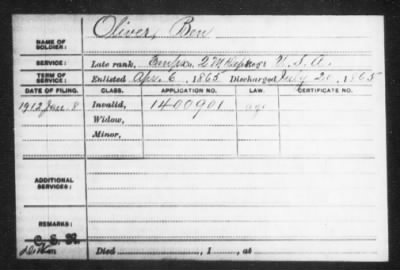 NAME OF SOLDIER: Oliver, Ben
SERVICE: Late rank, U.S.A.
TERM OF SERVICE: Enlisted Apr. 6, 1865 Discharged July 20, 1865
DATE OF FILING. CLASS. APPLICATION NO. LAW. CERTIFICATE NO.
1912 Jan. 8 Invalid, 1400901
Widow,
Minor,
ADDITIONAL SERVICES:
REMARKS:
Died , 1 , at